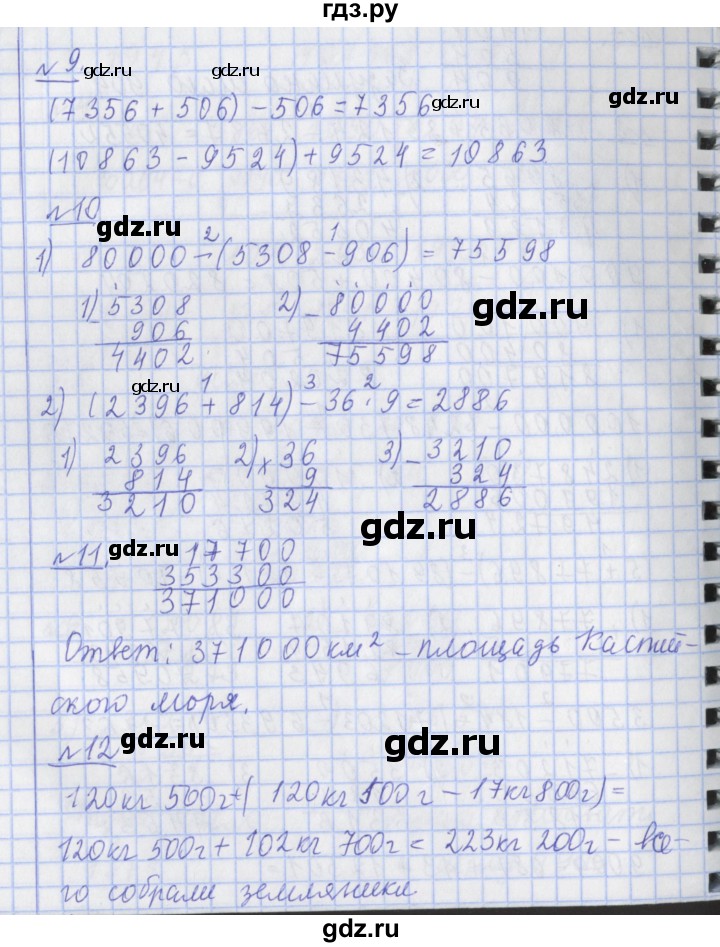 гдз.ру
№ 9.
gdz.ru gdz.ru
(7356 + 506) − 506 = 7356
gdz.ru
gdz.ru
(10863 − 9524) + 9524 = 10863
№10
gdz.ru
2 1
1) 80000 − (5308 − 906) = 75598
1) − 5308 2) − 80000
906 4402
4402 75598
gdz.ru
gdz.ru
1 3 2
2) (2396 + 814) − 36 · 9 = 2886
1) 2396 2) × 36 3) − 3210
814 9 324
3210 324 2886
gdz.ru
№11. 17700
gdz.ru
353300
371000
Ответ: 371000 км² – площадь Каспий-
ского моря.
№12
gdz.ru
gdz.ru
120кг 500г + (120кг 500г − 17кг 800г) =
120кг 500г + 102кг 700г = 223кг 200г – все-
го собрали земляники
gdz.ru